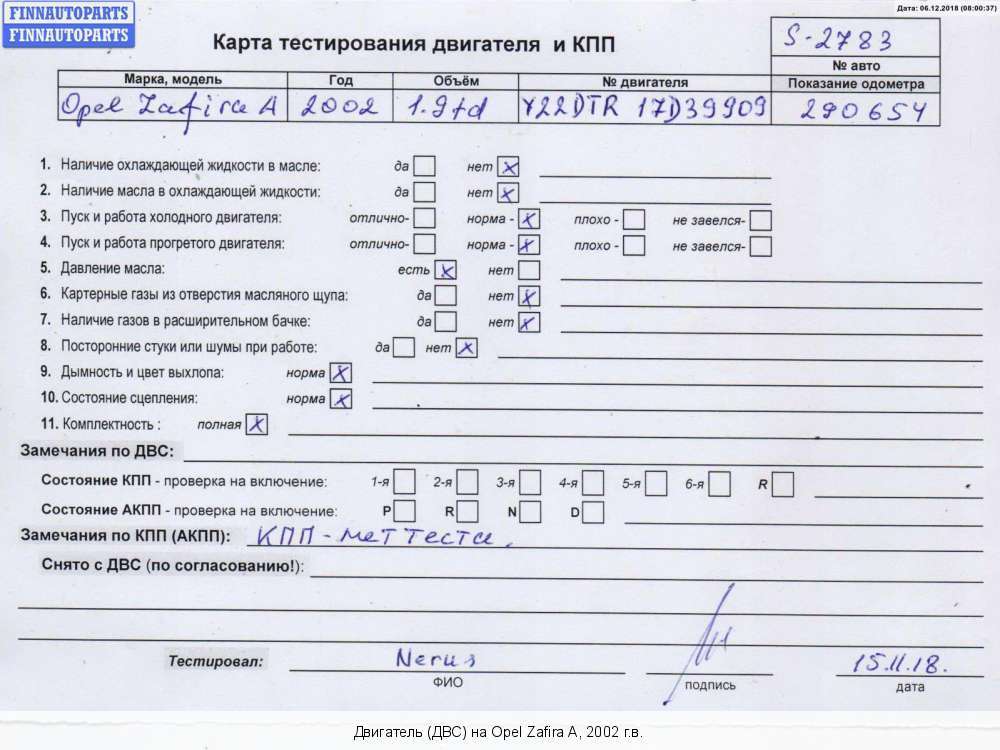 FINNAUTOPARTS
FINNAUTOPARTS
Дата: 06.12.2018 (08:00:37)
Карта тестирования двигателя и КПП
S-2783
№ авто
Марка, модель Год Объём № двигателя Показание одометра
Opel Zafira A 2002 1.9td Y22DTR 17D39909 290654
1. Наличие охлаждающей жидкости в масле: да нет x
2. Наличие масла в охлаждающей жидкости: да нет x
3. Пуск и работа холодного двигателя: отлично- норма - x плохо - не завелся-
4. Пуск и работа прогретого двигателя: отлично- норма - x плохо - не завелся-
5. Давление масла: есть x нет
6. Картерные газы из отверстия масляного щупа: да нет x
7. Наличие газов в расширительном бачке: да нет x
8. Посторонние стуки или шумы при работе: да нет x
9. Дымность и цвет выхлопа: норма x
10. Состояние сцепления: норма x
11. Комплектность : полная x
Замечания по ДВС:
Состояние КПП - проверка на включение: 1-я 2-я 3-я 4-я 5-я 6-я R
Состояние АКПП - проверка на включение: P R N D
Замечания по КПП (АКПП): КПП - нет теста.
Снято с ДВС (по согласованию!):
Тестировал: Nerus 15.11.18.
ФИО подпись дата
Двигатель (ДВС) на Opel Zafira A, 2002 г.в.